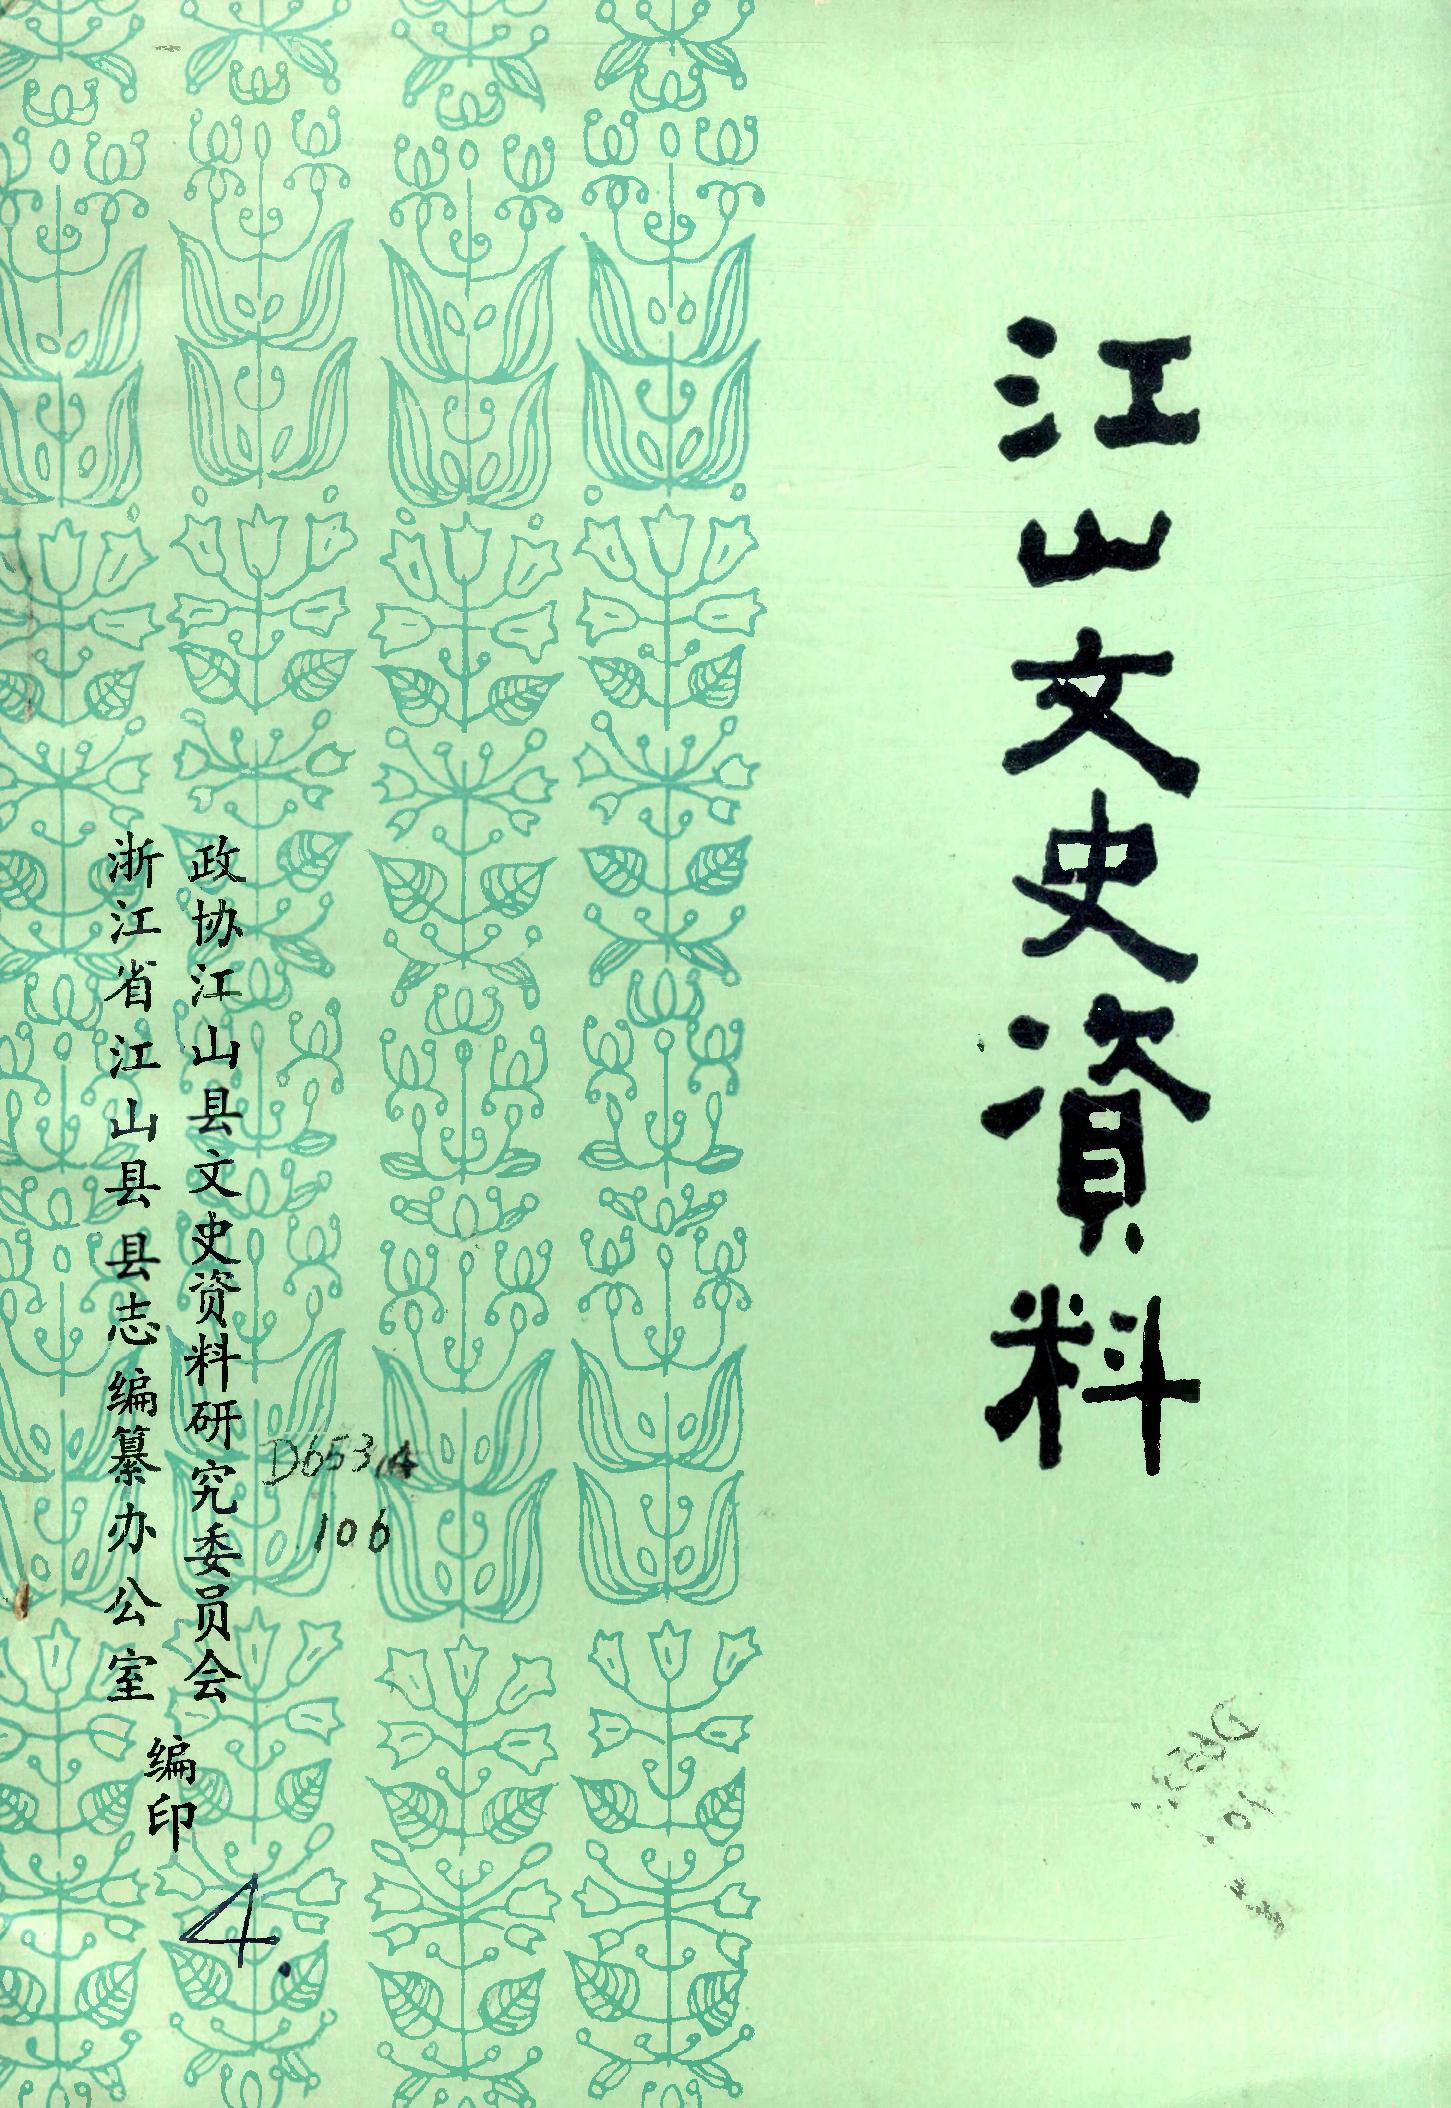 江山文史資料
政协江山县文史资料研究委员会
浙江省江山县县志编纂办公室
编印
D653.4
106
4.